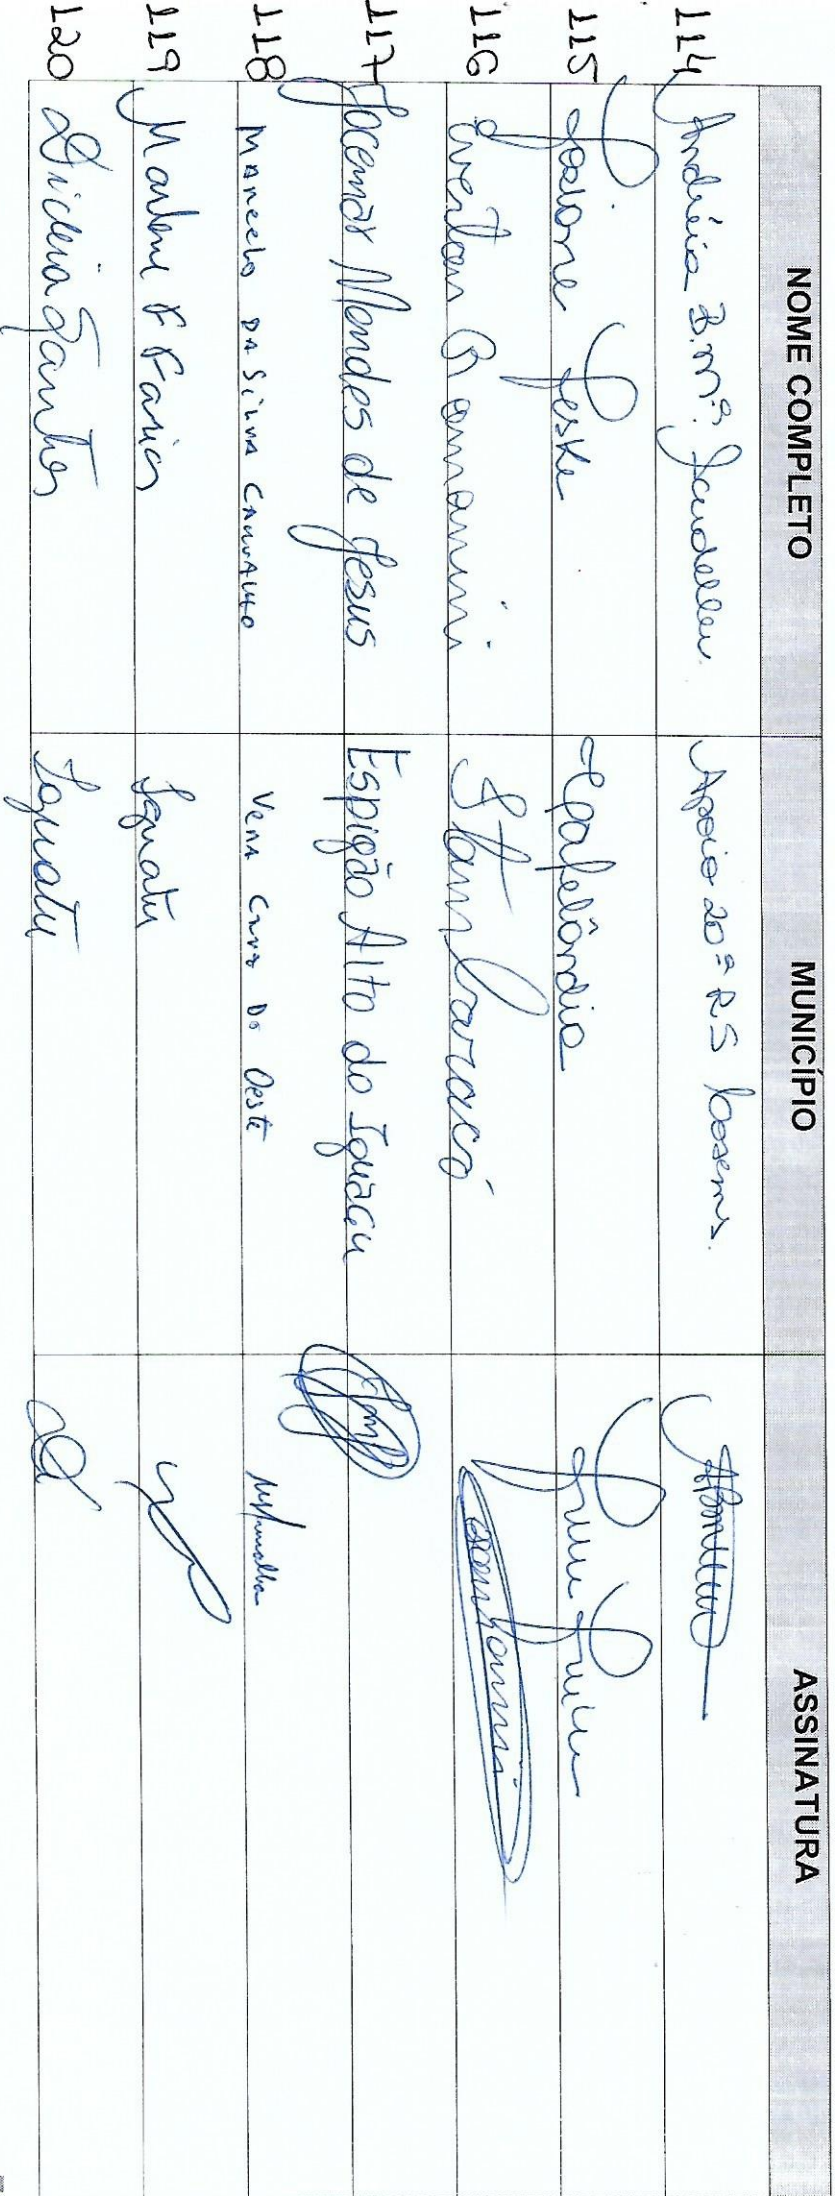 NOME COMPLETO MUNICÍPIO ASSINATURA
114 Andréia B. Mª. Apoio 20ª R.S Cosems.
115 Josiane Leske Cafelândia
116 Everton Romanini Itambaracá
117 Jocemar Mendes de Jesus Espigão Alto do Iguaçu
118 MARCELO DA SILVA CARVALHO VERA CRUZ DO OESTE
119 Marlene F Farias Iguatu
120 Dicleia Santos Iguatu